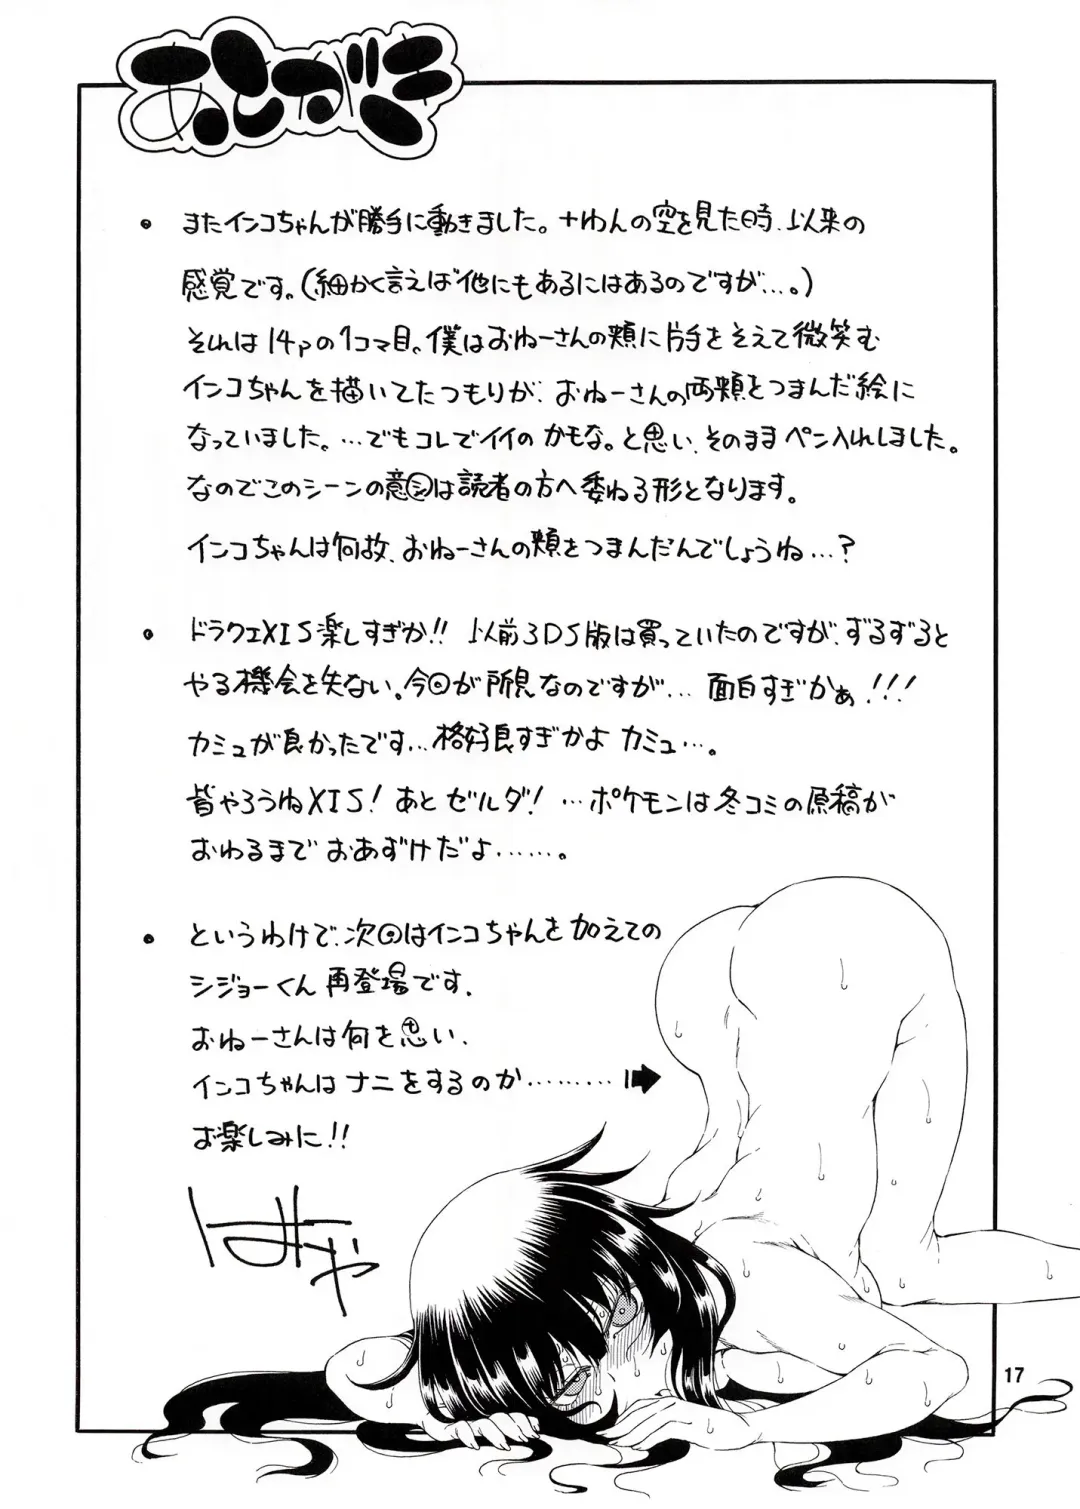 あとがき
・またインコちゃんが勝手に動きました。+わんの空を見た時、以来の
感覚です。(細かく言えば他にもあるにはあるのですが…。)
それは14pの1コマ目。僕はおねーさんの頬に片手をそえて微笑む
インコちゃんを描いてたつもりが、おねーさんの両頬をつまんだ絵に
なっていました。…でもコレでイイのかもな。と思い、そのままペン入れしました。
なのでこのシーンの意図は読者の方へ委ねる形となります。
インコちゃんは何故、おねーさんの頬をつまんだんでしょうね…?
・ドラクエXIS楽しすぎか!! 以前3DS版は買っていたのですが、ずるずると
やる機会を失ない。今回が所見なのですが… 面白すぎかぁ!!!
カミュが良かったです…格好良すぎかよ カミュ…。
皆やろうねXIS! あと ゼルダ! …ポケモンは冬コミの原稿が
おわるまで おあずけだよ……。
・というわけで、次回はインコちゃんを加えての
シジョーくん 再登場です。
おねーさんは何を思い、
インコちゃんは ナニをするのか………
お楽しみに!!
はみゃ
17